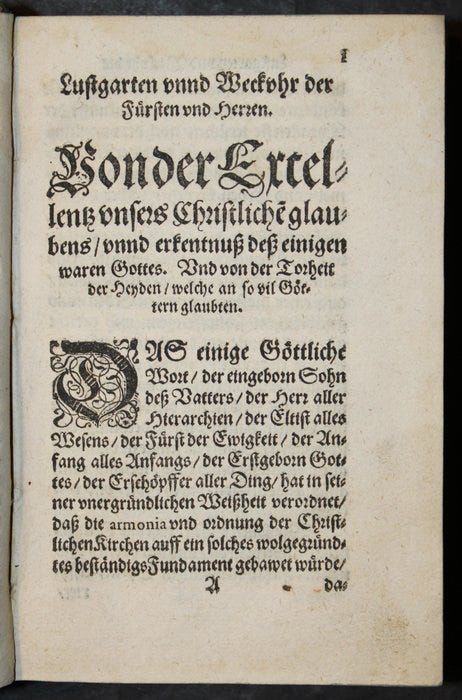 1
Lustgarten vnnd Weckvhr der
Fürsten vnd Herren.
Von der Excel-
lentz vnsers Christlichẽ glau-
bens / vnnd erkentnuß deß einigen
waren Gottes. Vnd von der Torheit
der Heyden / welche an so vil Göt-
tern glaubten.
DAS einige Göttliche
Wort / der eingeborn Sohn
deß Vatters / der Herr aller
Hierarchien / der Eltist alles
Wesens / der Fürst der Ewigkeit / der An-
fang alles Anfangs / der Erstgeborn Got-
tes / der Erschöpffer aller Ding / hat in sei-
ner vnergründlichen Weißheit verordnet /
daß die armonia vnd ordnung der Christ-
lichen Kirchen auff ein solches wolgegründ-
tes beständigs Fundament gebawet würde /
A da-